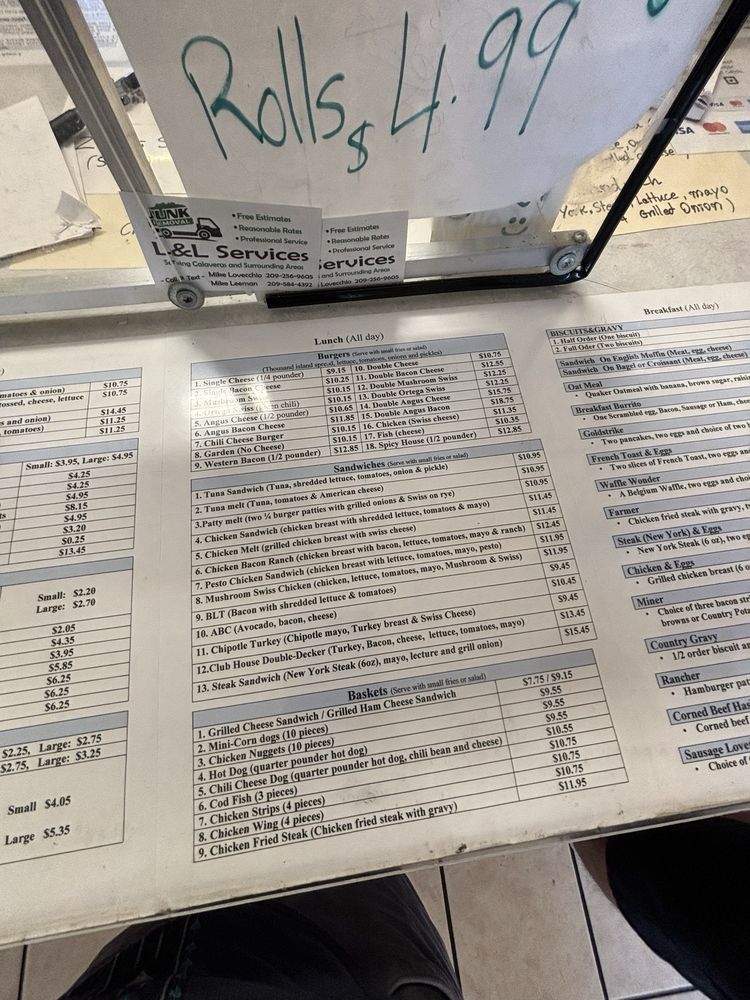 Rolls $4.99
JUNK
REMOVAL
• Free Estimates
• Reasonable Rates
• Professional Service
L&L Services
Serving Calaveras and Surrounding Areas
- Call & Text - Mike Lovecchio 209-256-9605
Mike Leeman 209-584-4392
• Free Estimates
• Reasonable Rates
• Professional Service
ervices
and Surrounding Areas
Lovecchio 209-256-9605
VISA
York, Ste Lettuce, mayo
Grilled Onion)
matoes & onion) $10.75
tossed, cheese, lettuce $10.75
$14.45
s and onion) $11.25
, tomatoes) $11.25
Small: $3.95, Large: $4.95
$4.25
$4.25
$4.95
$8.15
$4.95
$3.20
$0.25
$13.45
Small: $2.20
Large: $2.70
$2.05
$4.35
$3.95
$5.85
$6.25
$6.25
$6.25
$2.25, Large: $2.75
$2.75, Large: $3.25
Small $4.05
Large $5.35
Lunch (All day)
Burgers (Serve with small fries or salad)
(Thousand island spread, lettuce, tomatoes, onions and pickles)
1. Single Cheese (1/4 pounder) $9.15 10. Double Cheese $10.75
2. Single Bacon Cheese $10.25 11. Double Bacon Cheese $12.55
3. Mushroom Swiss $10.15 12. Double Mushroom Swiss $12.15
4. Ortega Swiss (green chili) $10.15 13. Double Ortega Swiss $12.25
5. Angus Cheese (1/2 pounder) $10.65 14. Double Angus Cheese $15.75
6. Angus Bacon Cheese $11.85 15. Double Angus Bacon $18.75
7. Chili Cheese Burger $10.15 16. Chicken (Swiss cheese) $11.35
8. Garden (No Cheese) $10.15 17. Fish (cheese) $10.35
9. Western Bacon (1/2 pounder) $12.85 18. Spicy House (1/2 pounder) $12.85
Sandwiches (Serve with small fries or salad)
1. Tuna Sandwich (Tuna, shredded lettuce, tomatoes, onion & pickle) $10.95
2. Tuna melt (Tuna, tomatoes & American cheese) $10.95
3.Patty melt (two ¼ burger patties with grilled onions & Swiss on rye) $10.95
4. Chicken Sandwich (chicken breast with shredded lettuce, tomatoes & mayo) $11.45
5. Chicken Melt (grilled chicken breast with swiss cheese) $11.45
6. Chicken Bacon Ranch (chicken breast with bacon, lettuce, tomatoes, mayo & ranch) $12.45
7. Pesto Chicken Sandwich (chicken breast with lettuce, tomatoes, mayo, pesto) $11.95
8. Mushroom Swiss Chicken (chicken, lettuce, tomatoes, mayo, Mushroom & Swiss) $11.95
9. BLT (Bacon with shredded lettuce & tomatoes) $9.45
10. ABC (Avocado, bacon, cheese) $10.45
11. Chipotle Turkey (Chipotle mayo, Turkey breast & Swiss Cheese) $9.45
12.Club House Double-Decker (Turkey, Bacon, cheese, lettuce, tomatoes, mayo) $13.45
13. Steak Sandwich (New York Steak (6oz), mayo, lecture and grill onion) $15.45
Baskets (Serve with small fries or salad)
1. Grilled Cheese Sandwich / Grilled Ham Cheese Sandwich $7.75 / $9.15
2. Mini-Corn dogs (10 pieces) $9.55
3. Chicken Nuggets (10 pieces) $9.55
4. Hot Dog (quarter pounder hot dog) $9.55
5. Chili Cheese Dog (quarter pounder hot dog, chili bean and cheese) $10.55
6. Cod Fish (3 pieces) $10.75
7. Chicken Strips (4 pieces) $10.75
8. Chicken Wing (4 pieces) $10.75
9. Chicken Fried Steak (Chicken fried steak with gravy) $11.95
Breakfast (All day)
BISCUITS&GRAVY
1. Half Order (One biscuit)
2. Full Oder (Two biscuits)
Sandwich On English Muffin (Meat, egg, cheese)
Sandwich On Bagel or Croissant (Meat, egg, cheese)
Oat Meal
• Quaker Oatmeal with banana, brown sugar, raisin
Breakfast Burrito
• One Scrambled egg, Bacon, Sausage or Ham, chee
Goldstrike
• Two pancakes, two eggs and choice of two b
French Toast & Eggs
• Two slices of French Toast, two eggs and
Waffle Wonder
• A Belgium Waffle, two eggs and choi
Farmer
• Chicken fried steak with gravy, t
Steak (New York) & Eggs
• New York Steak (6 oz), two eg
Chicken & Eggs
• Grilled chicken breast (6 o
Miner
• Choice of three bacon stri
browns or Country Pota
Country Gravy
• 1/2 order biscuit an
Rancher
• Hamburger pat
Corned Beef Has
• Corned beef
Sausage Love
• Choice of